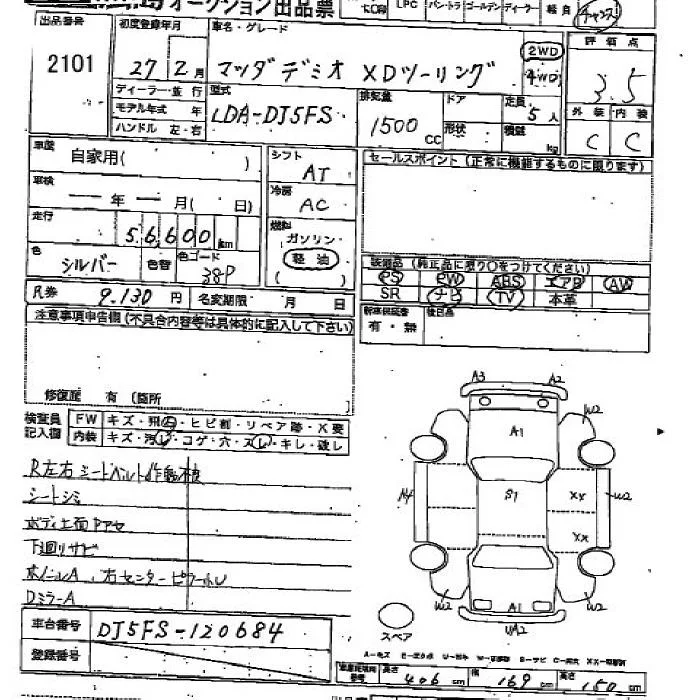 オークション出品票
LPC パン・トラ ゴールデン ディーラー 軽 良 チャンス
出品番号
2101
初度登録年月
27年 2月
車名・グレード
マツダ デミオ XDツーリング
2WD
4WD
評価点
3.5
ディーラー・並行
モデル年式 年
ハンドル 左・右
型式
LDA-DJ5FS
排気量
1500 CC
ドア
形状
定員 5 人
積載 kg
外装 内装
C C
車歴
自家用( )
車検
年 月( 日)
走行
56,600 km
色
シルバー
色替
色コード
38P
シフト
AT
冷房
AC
燃料
ガソリン
軽油
( )
セールスポイント (正常に機能するものに限ります)
装備品 (純正品に限り○をつけてください)
PS PW ABS エアB AW
SR ナビ TV 本革
R券 9,130 円
名変期限 月 日
新車保証書
有・無
後日品
注意事項申告欄(不具合内容等は具体的に記入して下さい)
修復歴 有(箇所 )
検査員
記入欄
FW キズ・飛石・ヒビ割・リペア跡・X要
内装 キズ・汚レ・コゲ・穴・スレ・キレ・破レ
R左右シートベルト作動不良
シートシミ
ボディ上面ドアセ
下廻りサビ
ボンネルA、右センターピラーホレ
DミラーA
A3 A2
A1
W2
A4
S1
XX
W2
XX
W2
W2
A1
UA2
スペア
車台番号
DJ5FS-120684
登録番号
長さ 406 cm
幅 169 cm
高さ 150 cm